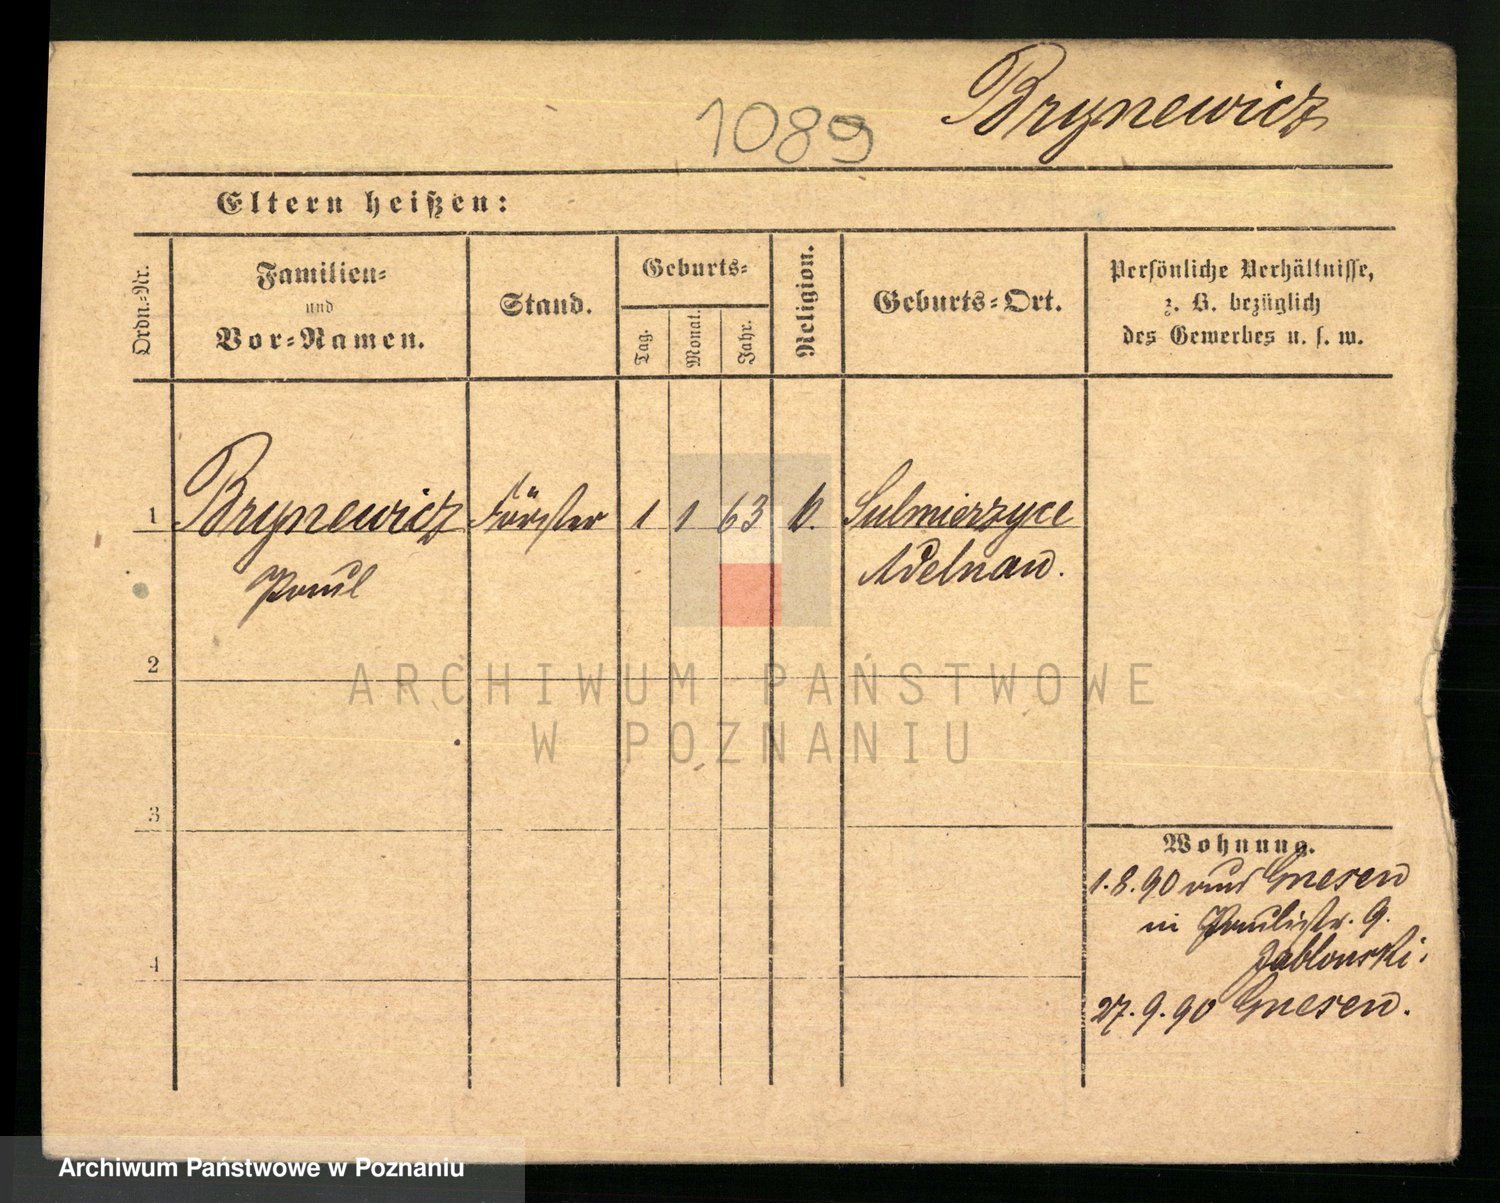 1089 Brynewicz
Eltern heißen:
Ordn.-Nr.
Familien-
und
Vor-Namen.
Stand.
Geburts-
Tag.
Monat.
Jahr.
Religion.
Geburts-Ort.
Persönliche Verhältnisse,
z. B. bezüglich
des Gewerbes u. s. w.
1 Brynewicz Förster 1 1 63 k. Sulmierzyce
Paul Adelnau.
2
ARCHIWUM PAŃSTWOWE
W POZNANIU
3
Wohnung.
1.8.90 aus Gnesen
in Paulistr. 9.
Jablonski.
4
27.9.90 Gnesen.
Archiwum Państwowe w Poznaniu